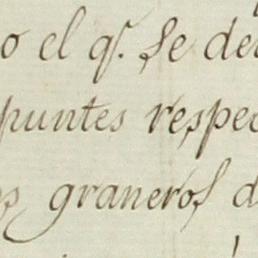 o el qᵉ. se de
puntes respec
os graneros d